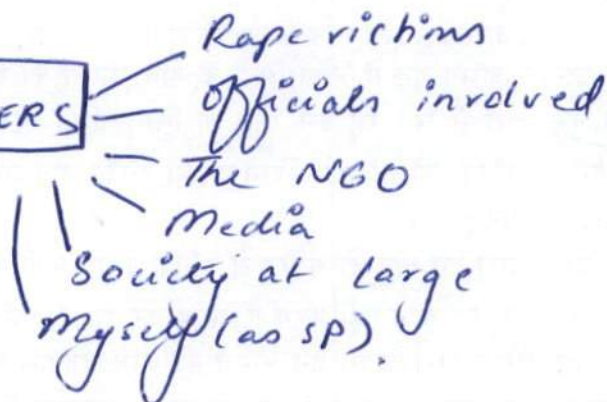 Rape victims
ERS
Officials involved
The NGO
Media
Society at large
Myself (as SP).